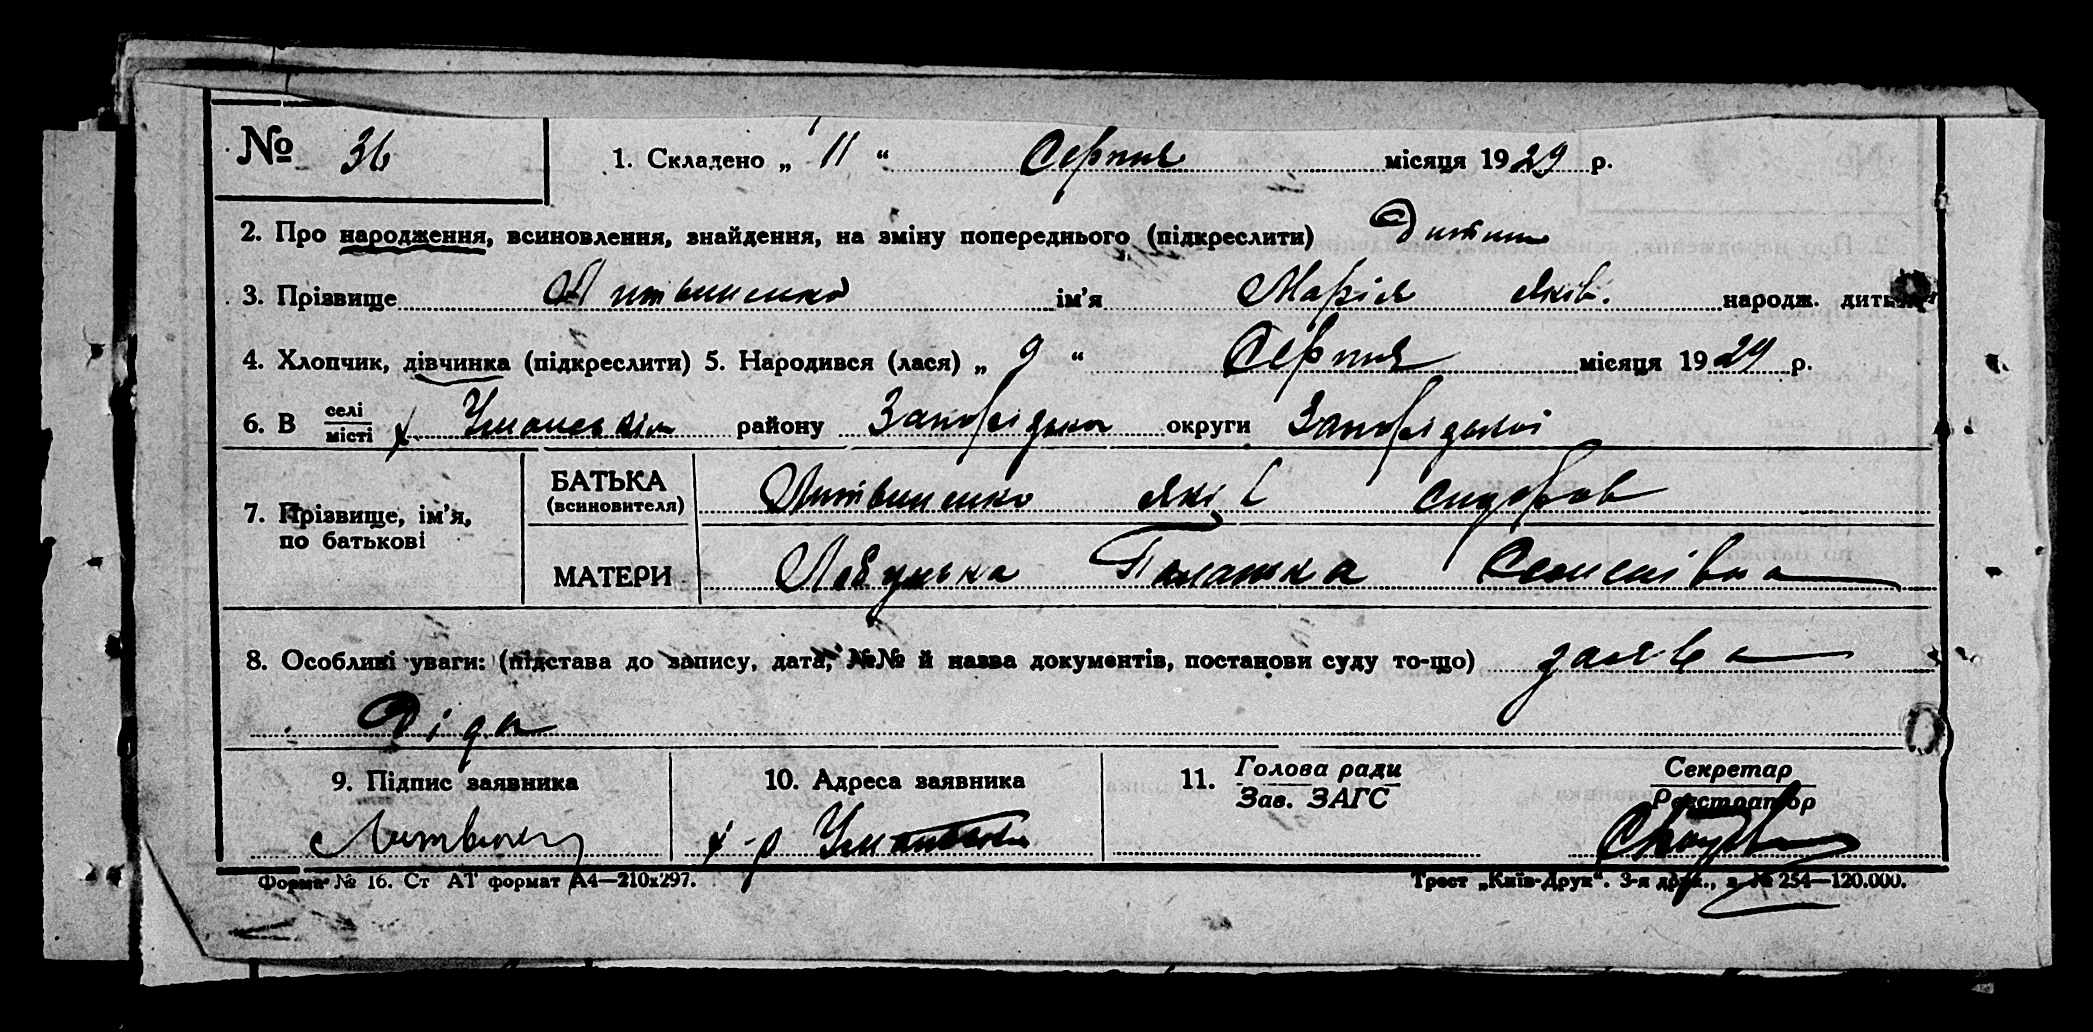 № 36 1. Складено „ 11 “ Серпня місяця 1929 р.
2. Про народження, всиновлення, знайдення, на зміну попереднього (підкреслити) Дитини
3. Прізвище Литвиненко ім'я Марія Яків. народж. дитини
4. Хлопчик, дівчинка (підкреслити) 5. Народився (лася) „ 9 “ Серпня місяця 1929 р.
6. В селі місті х. району Запорізького округи Запорізької
7. Прізвище, ім'я, по батькові
БАТЬКА (всиновителя) Литвиненко Яків Сидоров
МАТЕРИ Палашка
8. Особливі уваги: (підстава до запису, дата, №№ й назва документів, постанови суду то-що) заява
Діда
9. Підпис заявника 10. Адреса заявника 11. Голова ради Зав. ЗАГС Секретар Реєстратор
х-р
Форма № 16. Ст АТ формат А4—210х297. Трест „Київ-Друк“. 3-я друк., з. № 254—120.000.